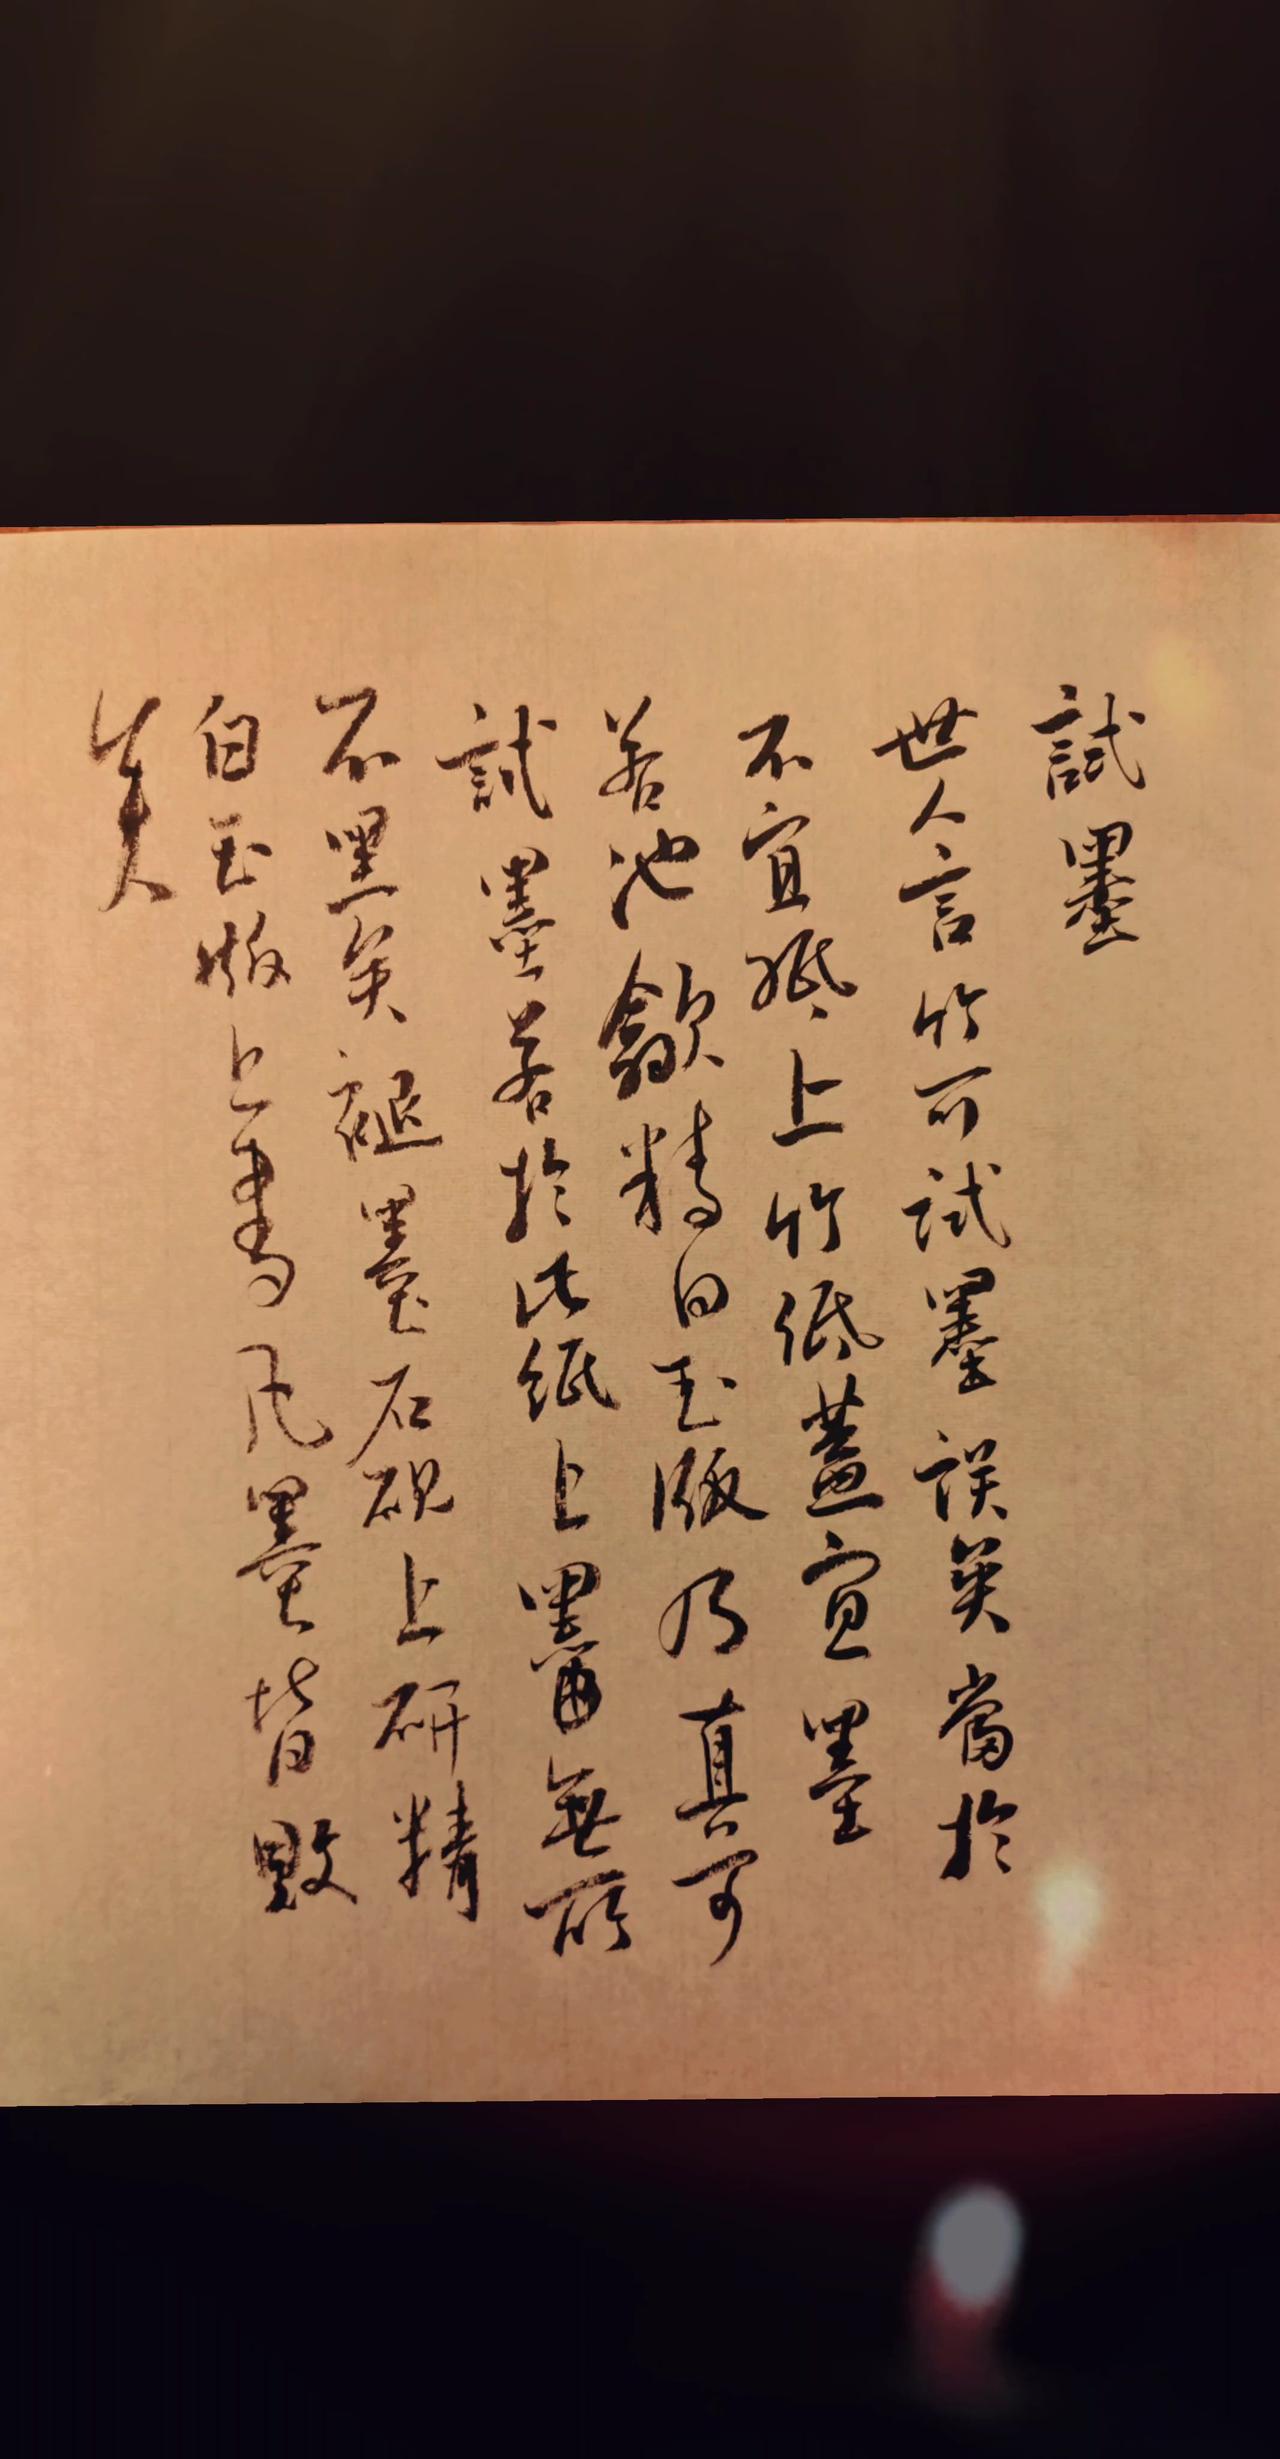 試墨
世人言竹可試墨誤矣當於
不宜紙上竹紙蓋宜墨
若池歙精白玉版乃真可
試墨若於此紙上黑無所
不黑矣褪墨石硯上研精
白玉版上書凡墨皆敗
矣